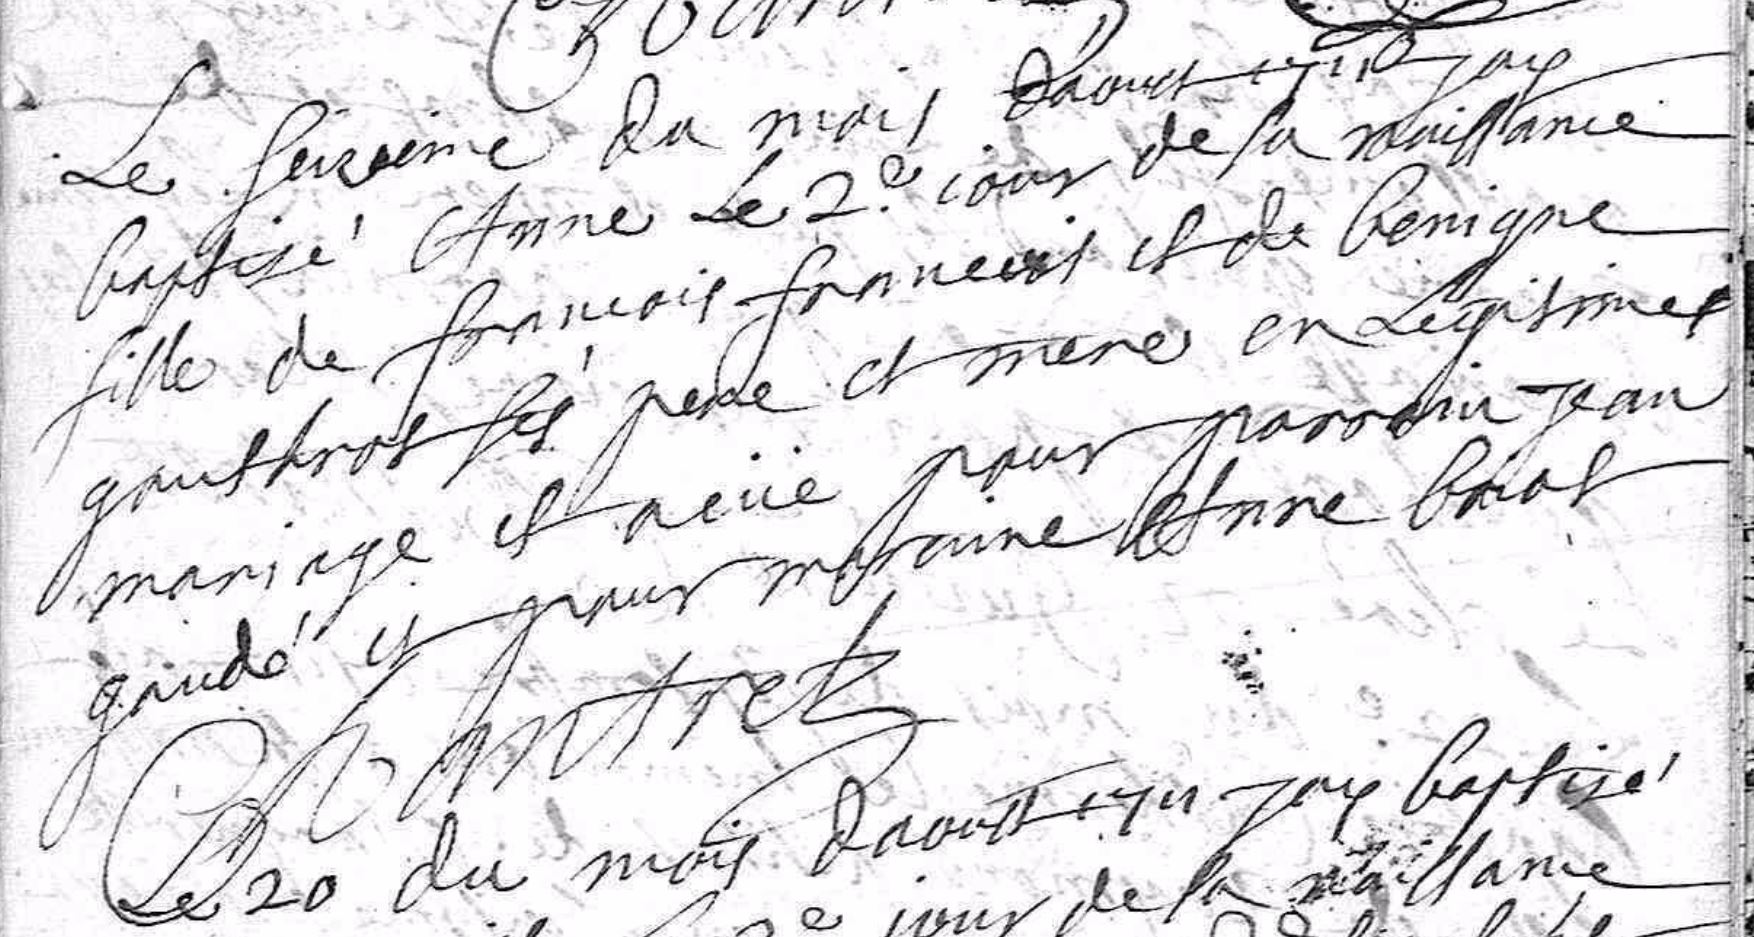 Le seizieme du mois d'aoust 1711 jay
baptisé Anne le 2e jour de sa naissance
fille de francois francois et de benigne
gauthrot ses pere et mere en legitimes
mariage et a eüe pour parrain jean
gaudé et pour maraine Anne boiot
Le 20 du mois daoust 1711 jay baptisé
2e jour de sa naissance